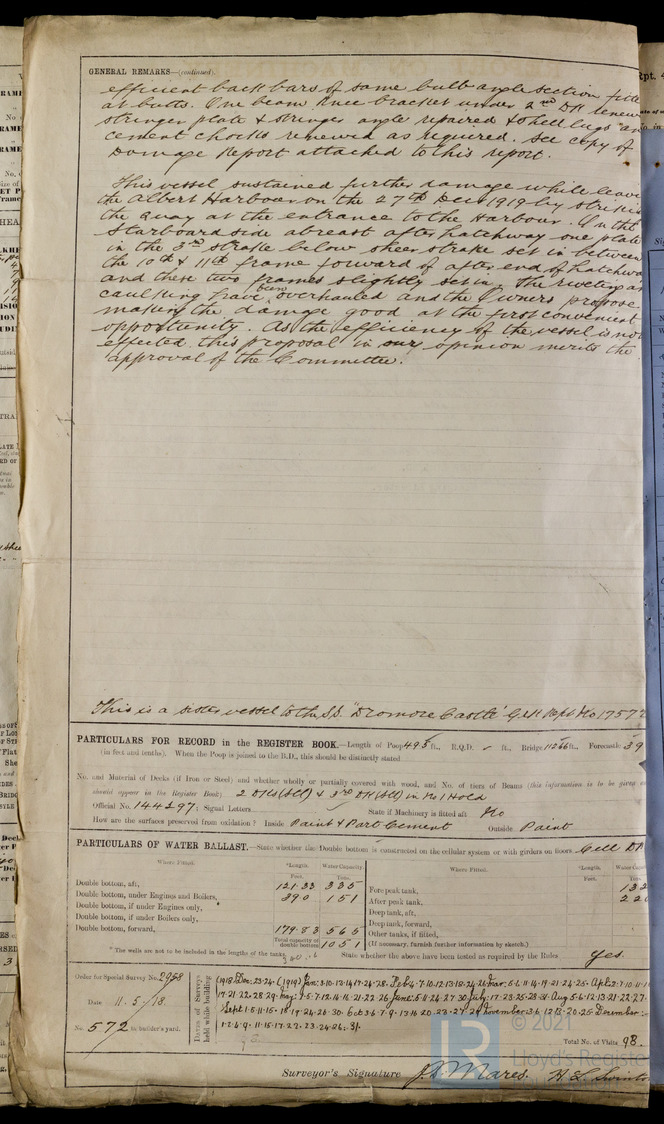 GENERAL REMARKS—(continued).
efficient back bars of same bulb angle section fitted
at butts. One beam knee bracket under 2nd Dk renew
stringer plate & stringer angle repaired & shell lugs an
cement chocks renewed as required. See copy of
Damage Report attached to this report.
This vessel sustained further damage while leavi
the Albert Harbour on the 27th Dec 1919 by striki
the quay at the entrance to the Harbour. On the
starboard side abreast after hatchway one plate
in the 3rd strake below sheer strake set in between
the 10th & 11th frame forward of after end of hatchwa
and these two frames slightly set in. The riveting an
caulking have been overhauled and the Owners propose
making the damage good at the first convenient
opportunity. As the efficiency of the vessel is not
effected this proposal in our opinion merits the
approval of the Committee.
This is a sister vessel to the S.S. "Dromore Castle" Rept No 17572
PARTICULARS FOR RECORD in the REGISTER BOOK.—Length of Poop 49.5 ft., R.Q.D. - ft., Bridge 112.66 ft., Forecastle 39
(in feet and tenths). When the Poop is joined to the B.D., this should be distinctly stated
No. and Material of Decks (if Iron or Steel) and whether wholly or partially covered with wood, and No. of tiers of Beams (this information is to be given
should appear in the Register Book) 2 Dks (Stl) & 3rd Dk (Stl) in No 1 Hold
Official No. 144297; Signal Letters State if Machinery is fitted aft No
How are the surfaces preserved from oxidation? Inside Paint & Part Cement Outside Paint
PARTICULARS OF WATER BALLAST.—State whether the Double bottom is constructed on the cellular system or with girders on floors Cell D
Where Fitted. *Length. Water Capacity Where Fitted. *Length. Water Capac
Feet. Tons. Feet. Tons
Double bottom, aft, 121.33 335 Fore peak tank, 13
Double bottom, under Engines and Boilers, 39.0 151 After peak tank, 22
Double bottom, if under Engines only, Deep tank, aft,
Double bottom, if under Boilers only, Deep tank, forward,
Double bottom, forward, 179.83 565 Other tanks, if fitted,
Total capacity of double bottom 1051 (If necessary, furnish further information by sketch.)
* The wells are not to be included in the lengths of the tanks. State whether the above have been tested as required by the Rules Yes.
Order for Special Survey No. 2958
Date 11.5.18.
No. 572 in builder's yard.
Dates of Surveys held while building
(1918) Dec: 23·24· (1919) Jan: 3·10·13·14·17·24·28· Feb 4·7·10·12·13·18·24·26· Mar: 5·6·11·14·19·21·24·25· Apl: 2·7·10·11
17·21·22·28·29· May: 1·5·7·12·14·16·21·22·26 June: 5·8·24·27·30 July: 17·23·25·28·31· Aug 5·6·12·13·21·22·27·
Sept 1·5·11·15·18·19·24·26·30· Oct 3·6·7·9·13·16·20·23·27·29 November 3·6·12·13·20·25· December:
1·2·6·9·11·15·17·22·23·24·26·31·
Total No. of Visits 98.
Surveyor's Signature J. Mares. H. L. Swinto
© 2021
Lloyd's Registe
LR